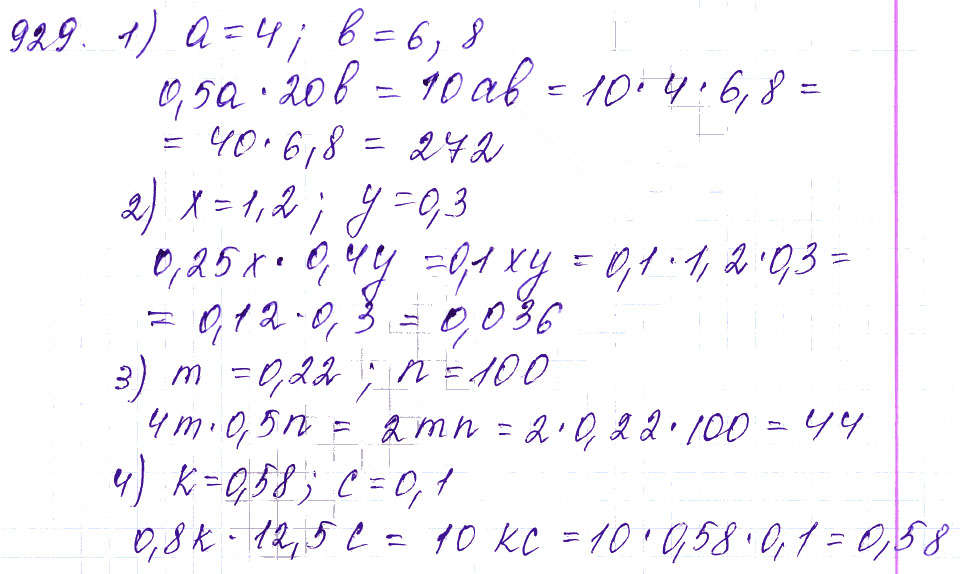 929. 1) a = 4; в = 6,8
0,5a · 20в = 10ав = 10 · 4 · 6,8 =
= 40 · 6,8 = 272
2) x = 1,2; y = 0,3
0,25x · 0,4y = 0,1xy = 0,1 · 1,2 · 0,3 =
= 0,12 · 0,3 = 0,036
3) m = 0,22; n = 100
4m · 0,5n = 2mn = 2 · 0,22 · 100 = 44
4) k = 0,58; c = 0,1
0,8k · 12,5c = 10kc = 10 · 0,58 · 0,1 = 0,58